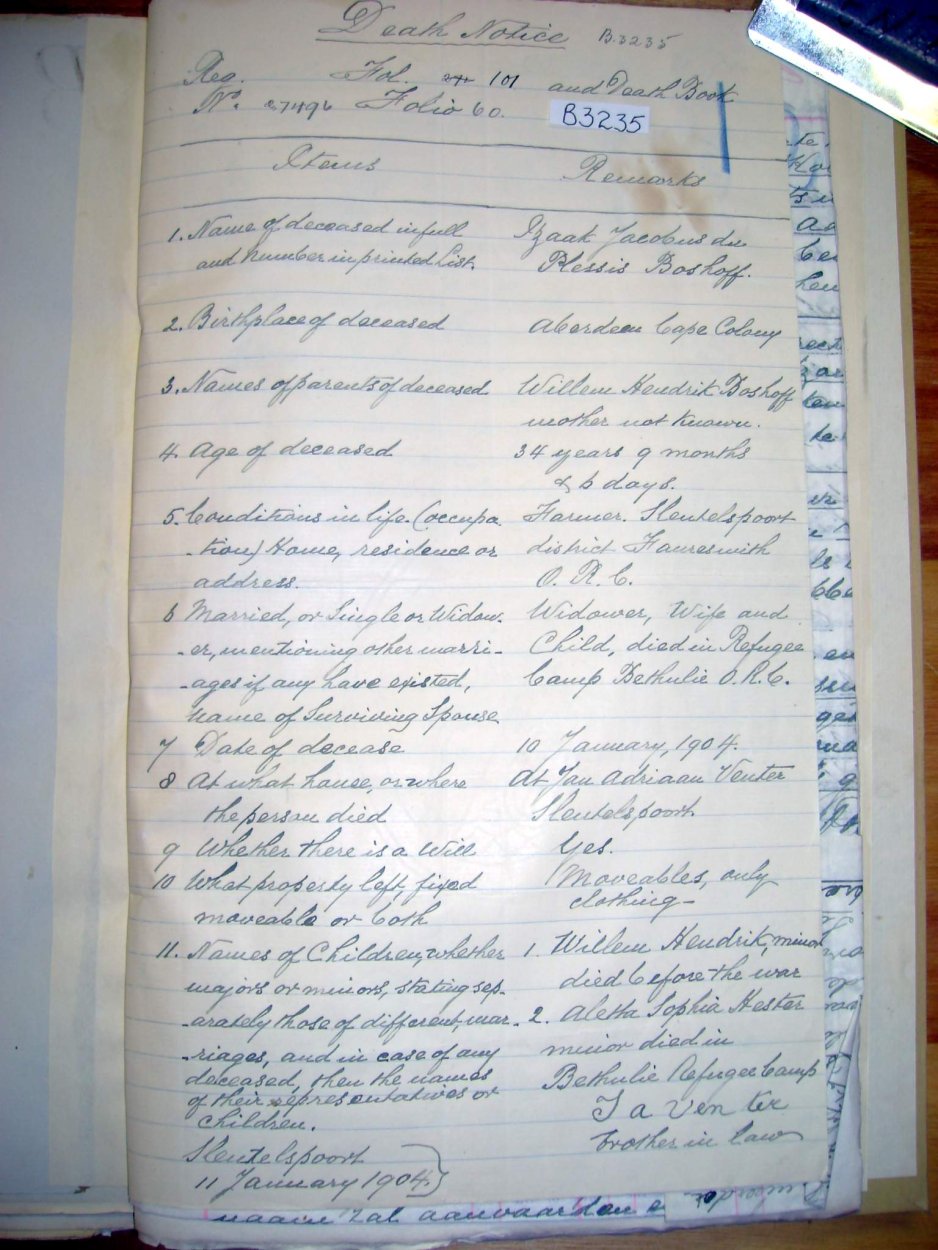 Death Notice B.3235
Reg. Fol. 101 and Death Book
No. 27496 Folio 60. B3235
Items Remarks
1. Name of deceased in full Izaak Jacobus du
and Number in printed List. Plessis Boshoff.
2. Birthplace of deceased Aberdeen Cape Colony
3. Names of parents of deceased Willem Hendrik Boshoff
mother not known.
4. Age of deceased 34 years 9 months
& 6 days.
5. Conditions in life (occupa- Farmer. Sleutelspoort
-tion) Home, residence or district Fauresmith
address. O.R.C.
6 Married, or Single or Widow- Widower, Wife and
-er, mentioning other marri- Child, died in Refugee
-ages if any have existed, Camp Bethulie O.R.C.
name of Surviving Spouse
7 Date of decease 10 January, 1904.
8 At what house, or where At Jan Adriaan Venter
the person died Sleutelspoort
9 Whether there is a Will Yes.
10 What property left, fixed Moveables, only
moveable or both clothing-
11. Names of Children, whether 1. Willem Hendrik, minor
majors or minors, stating sep- died before the war
-arately those of different, mar- 2. Aletta Sophia Hester
-riages, and in case of any minor died in
deceased, then the names Bethulie Refugee Camp
of their representatives or
children. J a Venter
Sleutelspoort brother in law
11 January 1904.
naam zal aanvaarden